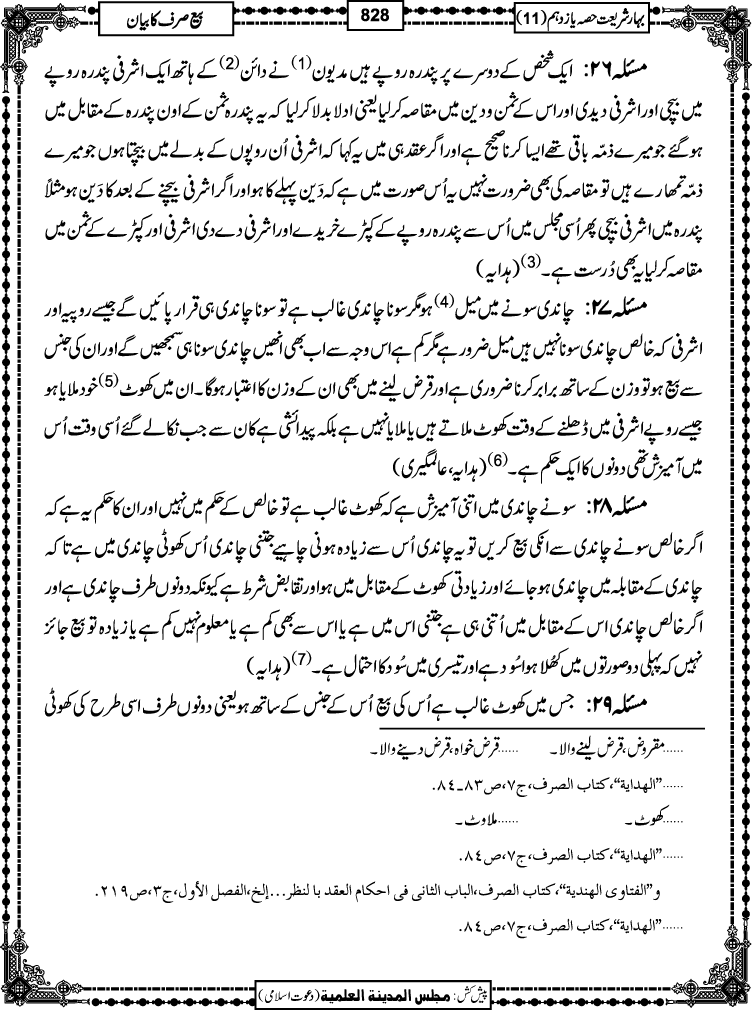 بہار شریعت حصہ یازدہم (11)
828
بیع صرف کا بیان
مسئلہ ۲۶: ایک شخص کے دوسرے پر پندرہ روپے ہیں مدیون(1) نے دائن(2) کے ہاتھ ایک اشرفی پندرہ روپے
میں بیچی اور اشرفی دیدی اور اس کے ثمن و دین میں مقاصہ کرلیا یعنی ادلا بدلا کرلیا کہ یہ پندرہ ثمن کے اون پندرہ کے مقابل میں
ہوگئے جو میرے ذمّہ باقی تھے ایسا کرنا صحیح ہے اور اگر عقد ہی میں یہ کہا کہ اشرفی اُن روپوں کے بدلے میں بیچتا ہوں جو میرے
ذمّہ تمھارے ہیں تو مقاصہ کی بھی ضرورت نہیں یہ اُس صورت میں ہے کہ دَین پہلے کا ہو اور اگر اشرفی بیچنے کے بعد کا دَین ہو مثلاً
پندرہ میں اشرفی بیچی پھر اُسی مجلس میں اُس سے پندرہ روپے کے کپڑے خریدے اور اشرفی دے دی اشرفی اور کپڑے کے ثمن میں
مقاصہ کرلیا یہ بھی دُرست ہے۔(3) (ہدایہ)
مسئلہ ۲۷: چاندی سونے میں میل(4) ہو مگر سونا چاندی غالب ہے تو سونا چاندی ہی قرار پائیں گے جیسے روپیہ اور
اشرفی کہ خالص چاندی سونا نہیں ہیں میل ضرور ہے مگر کم ہے اس وجہ سے اب بھی انھیں چاندی سونا ہی سمجھیں گے اور ان کی جنس
سے بیع ہو تو وزن کے ساتھ برابر کرنا ضروری ہے اور قرض لینے میں بھی ان کے وزن کا اعتبار ہوگا۔ ان میں کھوٹ(5) خود ملایا ہو
جیسے روپے اشرفی میں ڈھلنے کے وقت کھوٹ ملاتے ہیں یا ملایا نہیں ہے بلکہ پیدائشی ہے کان سے جب نکالے گئے اُسی وقت اُس
میں آمیزش تھی دونوں کا ایک حکم ہے۔(6) (ہدایہ، عالمگیری)
مسئلہ ۲۸: سونے چاندی میں اتنی آمیزش ہے کہ کھوٹ غالب ہے تو خالص کے حکم میں نہیں اور ان کا حکم یہ ہے کہ
اگر خالص سونے چاندی سے انکی بیع کریں تو یہ چاندی اُس سے زیادہ ہونی چاہیے جتنی چاندی اُس کھوٹی چاندی میں ہے تاکہ
چاندی کے مقابلہ میں چاندی ہو جائے اور زیادتی کھوٹ کے مقابل میں ہو اور تقابض شرط ہے کیونکہ دونوں طرف چاندی ہے اور
اگر خالص چاندی اس کے مقابل میں اُتنی ہی ہے جتنی اس میں ہے یا اس سے بھی کم ہے یا معلوم نہیں کم ہے یا زیادہ تو بیع جائز
نہیں کہ پہلی دو صورتوں میں کھُلا ہوا سُود ہے اور تیسری میں سُود کا احتمال ہے۔(7) (ہدایہ)
مسئلہ ۲۹: جس میں کھوٹ غالب ہے اُس کی بیع اُس کے جنس کے ساتھ ہو یعنی دونوں طرف اسی طرح کی کھوٹی
......مقروض، قرض لینے والا۔ ......قرض خواہ، قرض دینے والا۔
......"الهداية"، کتاب الصرف، ج٧، ص٨٣ـ٨٤.
......کھوٹ۔ ......ملاوٹ۔
......"الهداية"، کتاب الصرف، ج٧، ص٨٤.
و"الفتاوى الهندية"، کتاب الصرف، الباب الثانی فی احکام العقد با لنظر...إلخ، الفصل الأول، ج٣، ص٢١٩.
......"الهداية"، کتاب الصرف، ج٧، ص٨٤.
پیش کش: مجلس المدينة العلمية (دعوت اسلامی)